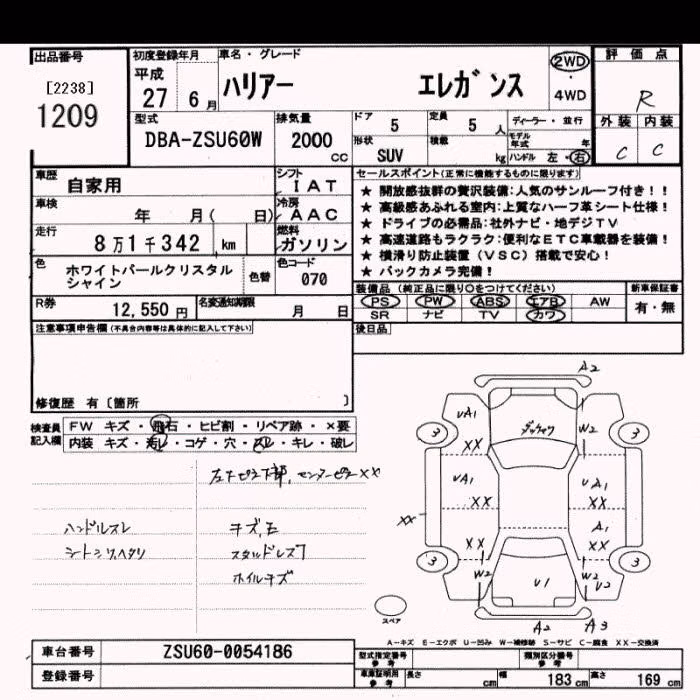 出品番号
[2238]
1209
初度登録年月
平成
27 6月
車名・グレード
ハリアー エレガンス
2WD
・
4WD
評価点
R
外装 内装
C C
型式
DBA-ZSU60W
排気量
2000
cc
ドア
5
定員
5 人
ディーラー・並行
モデル年式 年
形状
SUV
積載
kg
ハンドル 左・右
車歴
自家用
シフト
IAT
車検
年 月( 日)
冷房
AAC
走行
8万1千342 km
燃料
ガソリン
色
ホワイトパールクリスタル
シャイン
色替
色コード
070
R券
12,550円
名変通知期限
月 日
セールスポイント(正常に機能するものに限ります)
★ 開放感抜群の贅沢装備:人気のサンルーフ付き!!
★ 高級感あふれる室内:上質なハーフ革シート仕様!
★ ドライブの必需品:社外ナビ・地デジTV
★ 高速道路もラクラク:便利なETC車載器を装備!
★ 横滑り防止装置(VSC)搭載で安心!
★ バックカメラ完備!
装備品(純正品に限り○をつけてください)
新車保証書
PS PW ABS エアB AW
SR ナビ TV カワ
有・無
後日品
注意事項申告欄(不具合内容等は具体的に記入して下さい)
修復歴 有〔箇所 〕
検査員
記入欄
FW キズ・飛石・ヒビ割・リペア跡・×要
内装 キズ・汚レ・コゲ・穴・スレ・キレ・破レ
××
ハンドルスレ
キズ、E
ホイルキズ
A2
UA1
W2
3
3
XX
UA1
UA1
XX
XX
XX
A1
XX
XX
3
3
W2
W2
U2
U1
スペア
A2
A3
A-キズ E-エクボ U-凹み W-補修跡 S-サビ C-腐食 XX-交換済
車台番号
ZSU60-0054186
登録番号
型式指定番号
参考
類別区分番号
参考
車庫証明用
参考
長さ cm
幅 183 cm
高さ 169 cm